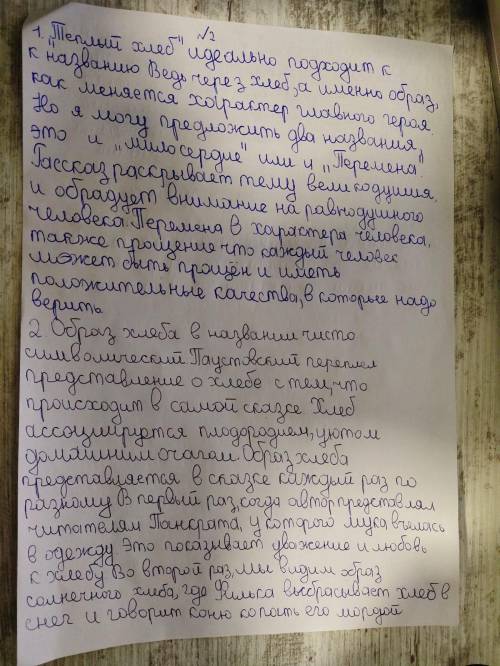 №2
1. "Теплый хлеб" идеально подходит к
к "названию Ведь через хлеб, а именно образ,
как меняется характер главного героя.
Но я могу предложить два названия
это и "милосердие" или и "Перемена".
Рассказ раскрывает тему великодушия,
и обрадует внимание на равнодушного
человека. Перемена в характера человека,
также прощения что каждый человек
может быть прощён и иметь
положительные качества, в которые надо
верить
2. Образ хлеба в названии чисто
символический Паустовский переплел
представление о хлебе с тем, что
происходит в самой сказке Хлеб
ассоциируется плодородием, уютом
домашним очагом. Образ хлеба
представляется в сказке каждый раз по
разному В первый раз, когда автор представлял
читателям Панкрата, у которого мука въилась
в одежду Это показывает уважение и любовь
к хлебу Во второй раз, мы видим образ
солнечного хлеба, где Филька выбрасывает хлеб в
снег и говорит коню копать его мордой